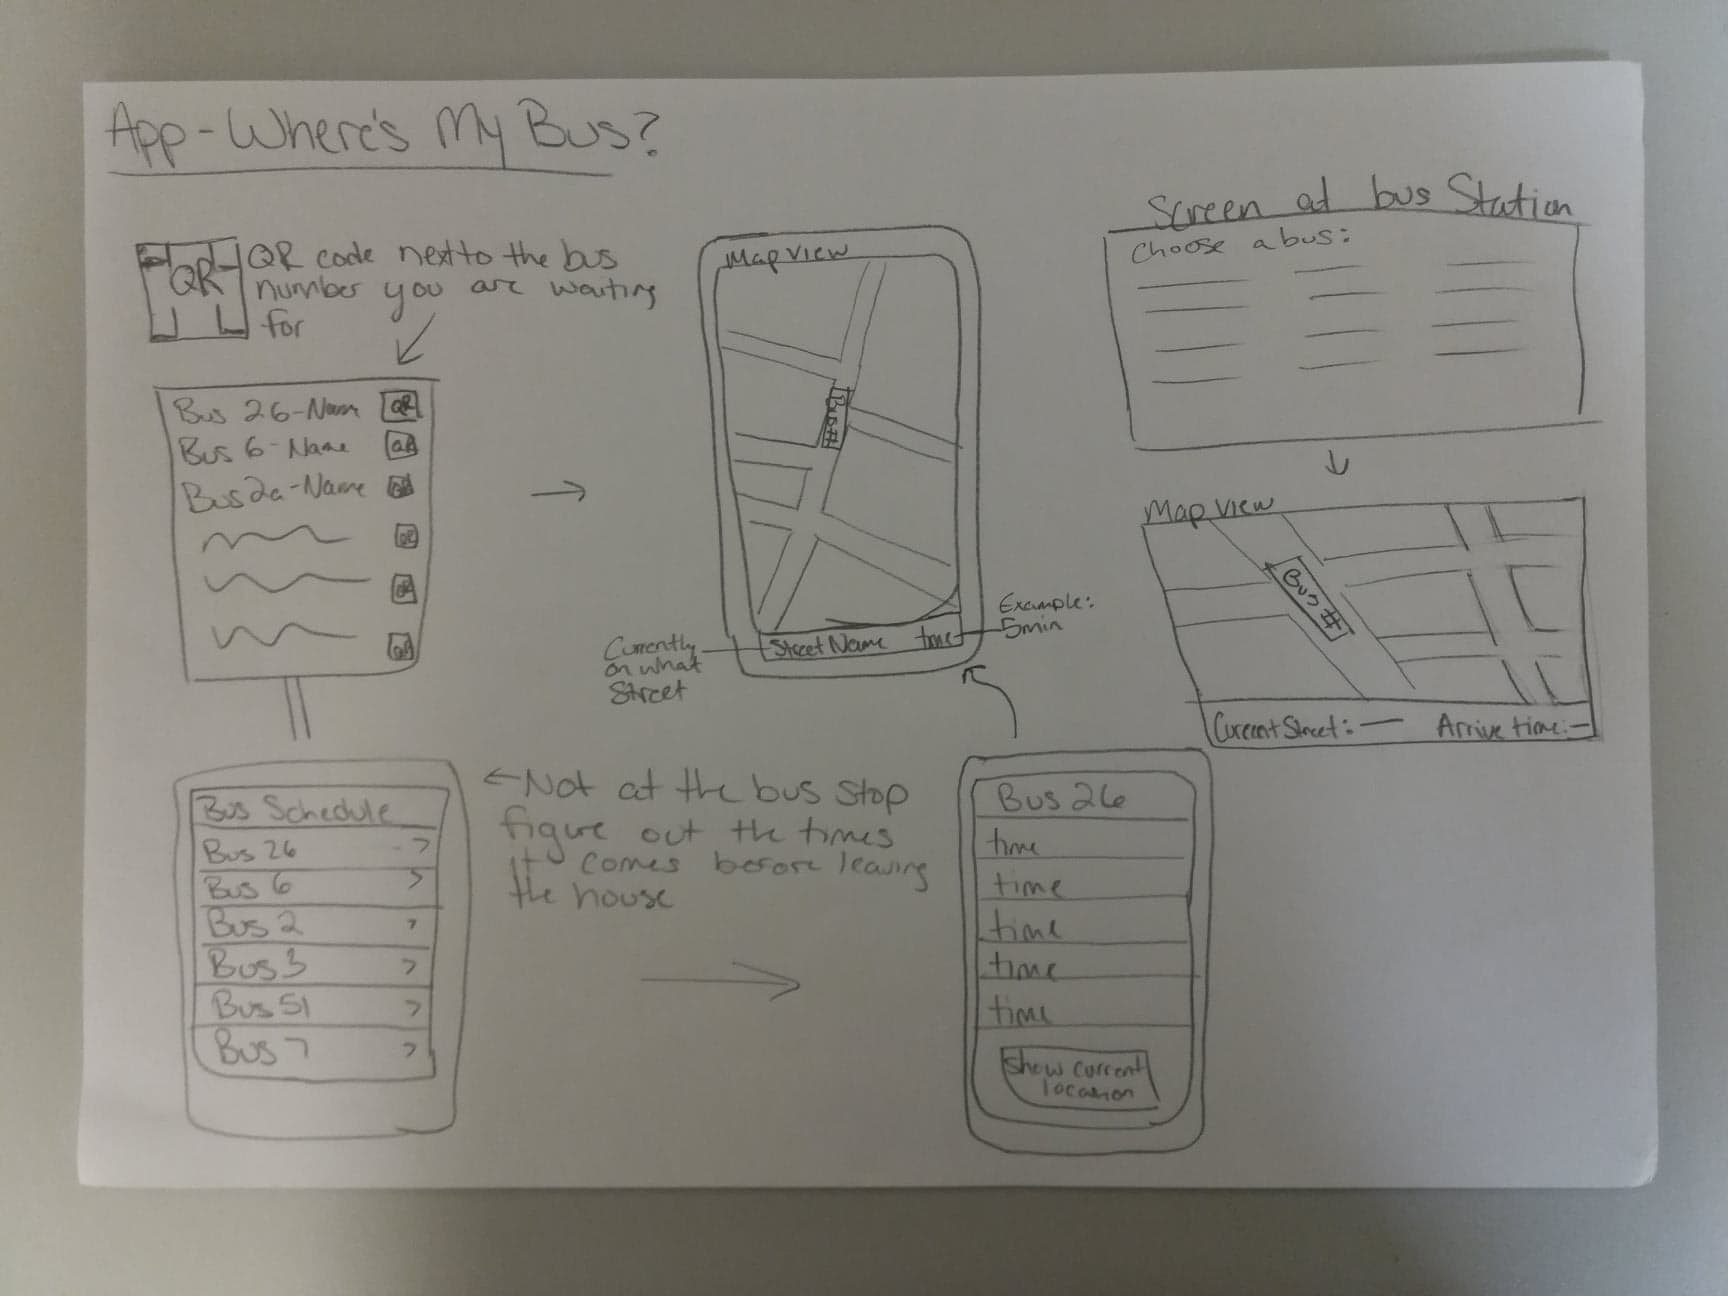 App - Where's My Bus?
QR
QR code next to the bus
number you are waiting
for
Bus 26-Name QR
Bus 6-Name QR
Bus 2a-Name QR
QR
QR
QR
Map View
Bus #
Street Name time
Currently
on what
Street
Example:
5min
Screen at bus Station
Choose a bus:
Map View
Bus #
Current Street: — Arrive time: —
Bus Schedule
Bus 26 >
Bus 6 >
Bus 2 >
Bus 3 >
Bus 51 >
Bus 7 >
← Not at the bus stop
figure out the times
it comes before leaving
the house
Bus 26
time
time
time
time
time
Show current
location